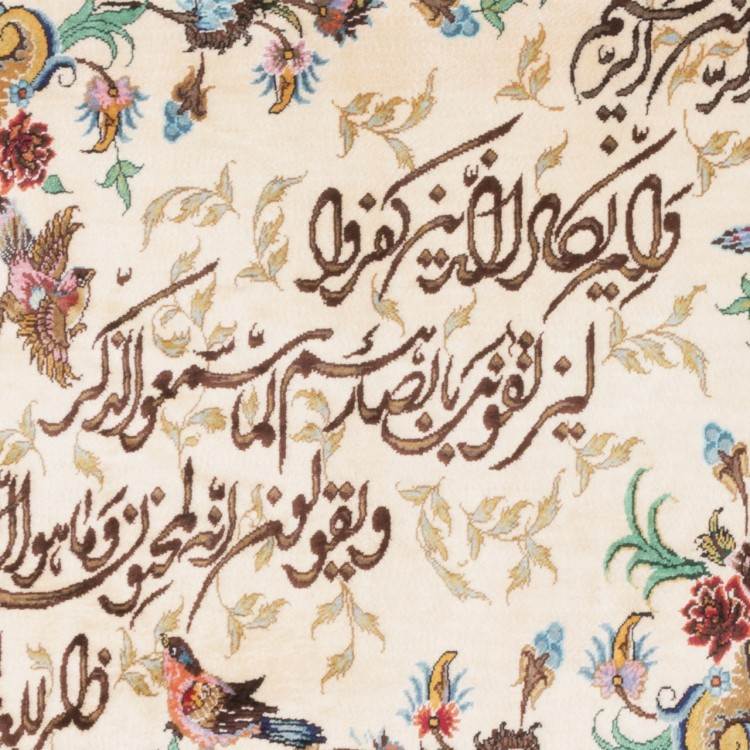 الرحمن الرحیم
وان یکاد الذین کفروا
لیزلقونک بابصارهم لما سمعوا الذکر
ویقولون انّه لمجنون وما هو الا
ذکر للعا